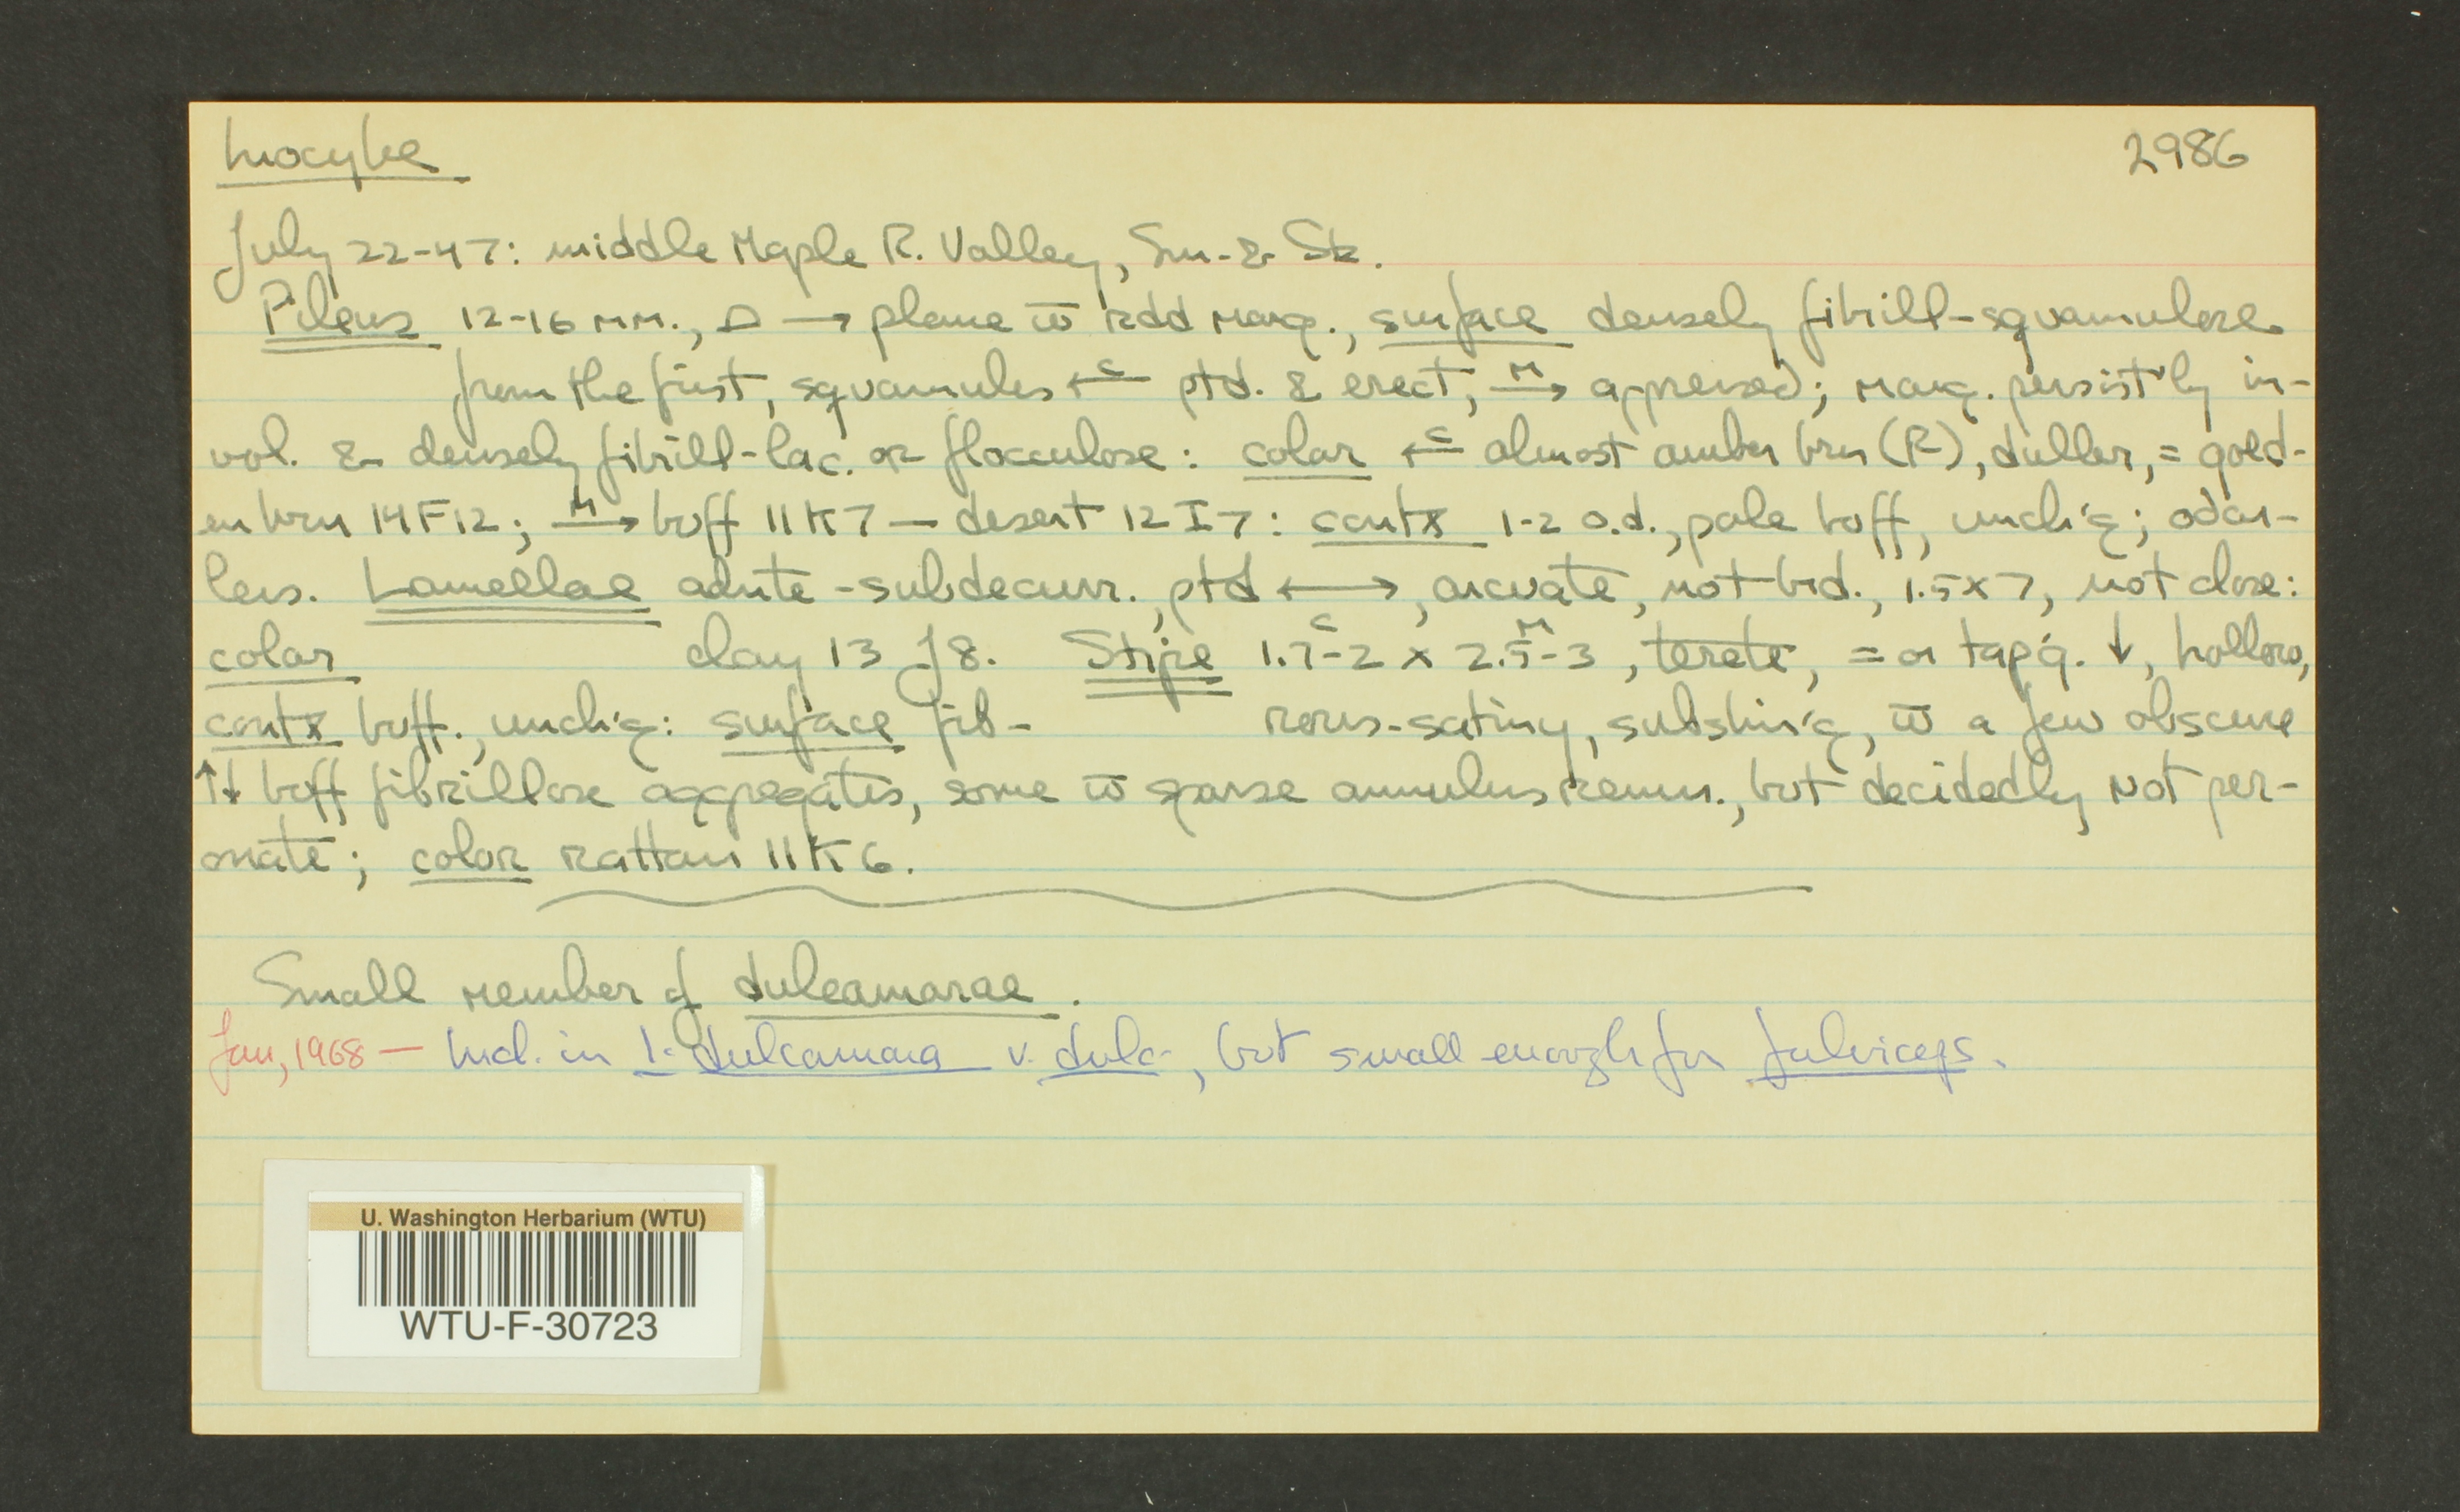 Inocybe
2986
July 22-47: middle Maple R. Valley, Sm. & St.
Pileus 12-16 mm., ⌓ → plane w̄ rdd marg., surface densely fibrill-squamulose
from the first, squamules ←c ptd. & erect, M→ appressed; marg. persist'ly in-
vol. & densely fibrill-lac. or flocculose: color ←c almost amber brn (R), duller, = gold-
en brn 14F12; M→ buff 11K7 — desert 12I7: contx 1-2 o.d., pale buff, unch'g; odor-
less. Lamellae adnte-subdecurr., ptd ↔, arcuate, not brd., 1.5x7, not close:
color clay 13J8. Stipe 1.7-2 c x 2.5-3 M, terete, = or tap'g. ↓, hollow,
contx buff., unch'g: surface fib- rous-satiny, subshin'g, w̄ a few obscure
↑↓ buff fibrillose aggregates, some w̄ sparse annulus remn., but decidedly not per-
onate; color rattan 11K6.
Small member of dulcamarae.
Jan, 1968 — Incl. in I. dulcamara v. dulc-, but small enough for fulviceps.
U. Washington Herbarium (WTU)
WTU-F-30723